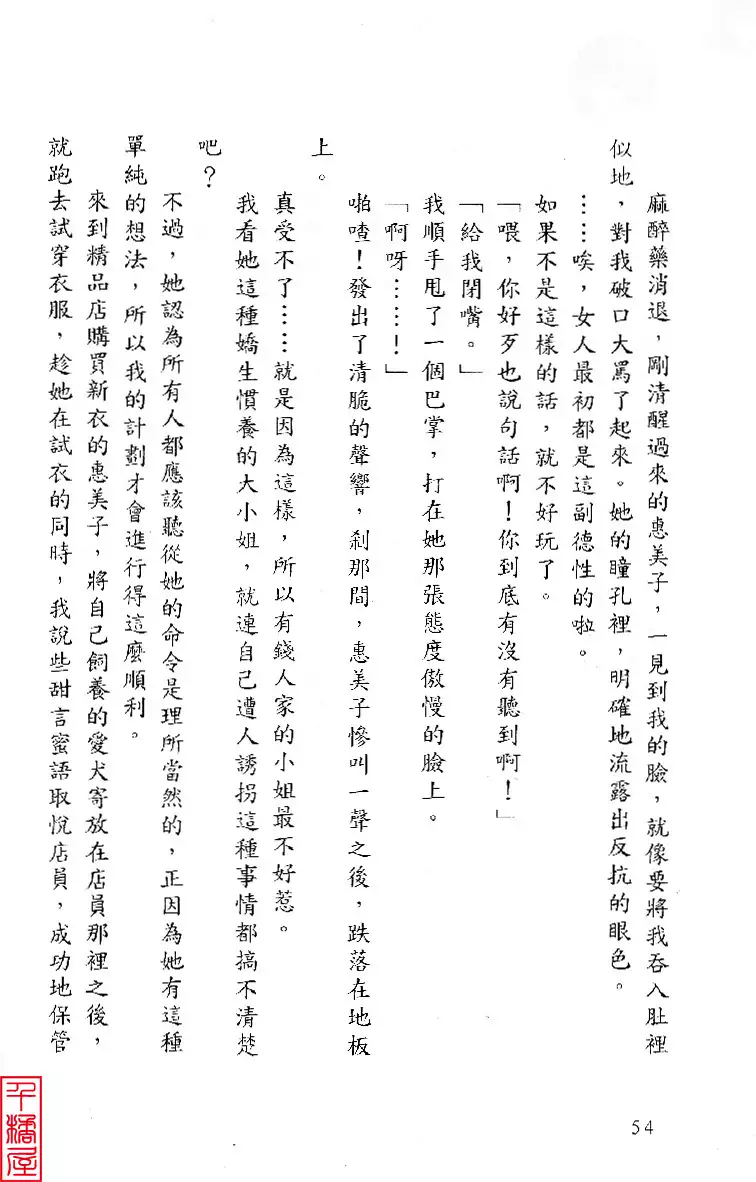 麻醉藥消退，剛清醒過來的惠美子，一見到我的臉，就像要將我吞入肚裡
似地，對我破口大罵了起來。她的瞳孔裡，明確地流露出反抗的眼色。
……唉，女人最初都是這副德性的啦。
如果不是這樣的話，就不好玩了。
「喂，你好歹也說句話啊！你到底有沒有聽到啊！」
「給我閉嘴。」
我順手甩了一個巴掌，打在她那張態度傲慢的臉上。
「啊呀……！」
啪喳！發出了清脆的聲響，剎那間，惠美子慘叫一聲之後，跌落在地板
上。
真受不了……就是因為這樣，所以有錢人家的小姐最不好惹。
我看她這種嬌生慣養的大小姐，就連自己遭人誘拐這種事情都搞不清楚
吧？
不過，她認為所有人都應該聽從她的命令是理所當然的，正因為她有這種
單純的想法，所以我的計劃才會進行得這麼順利。
來到精品店購買新衣的惠美子，將自己飼養的愛犬寄放在店員那裡之後，
就跑去試穿衣服，趁她在試衣的同時，我說些甜言蜜語取悅店員，成功地保管
54
千橘屋